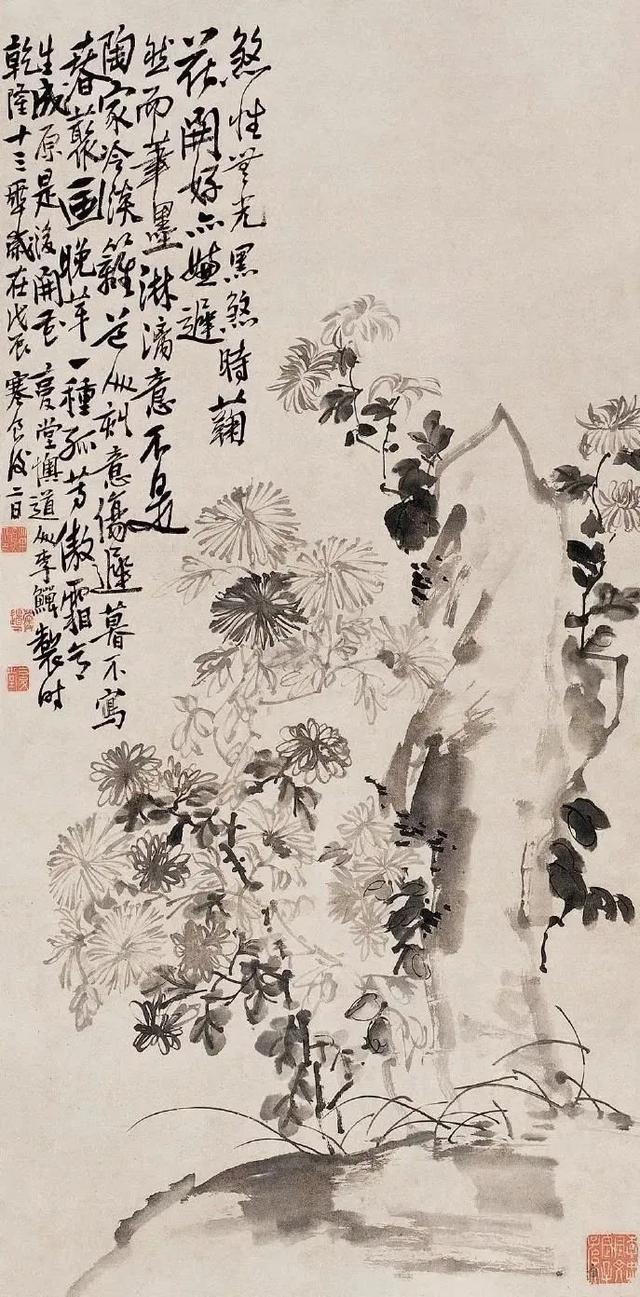 煞性無光黑煞時菊
花開好亦嫌遲
然而筆墨淋漓意不是
陶家冷淡籬老人刻意傷遲暮不寫
春叢畫晚華一種孤芳傲霜色
生成原是後開花 懊道人李鱓製時
乾隆十三年歲在戊辰寒食後二日